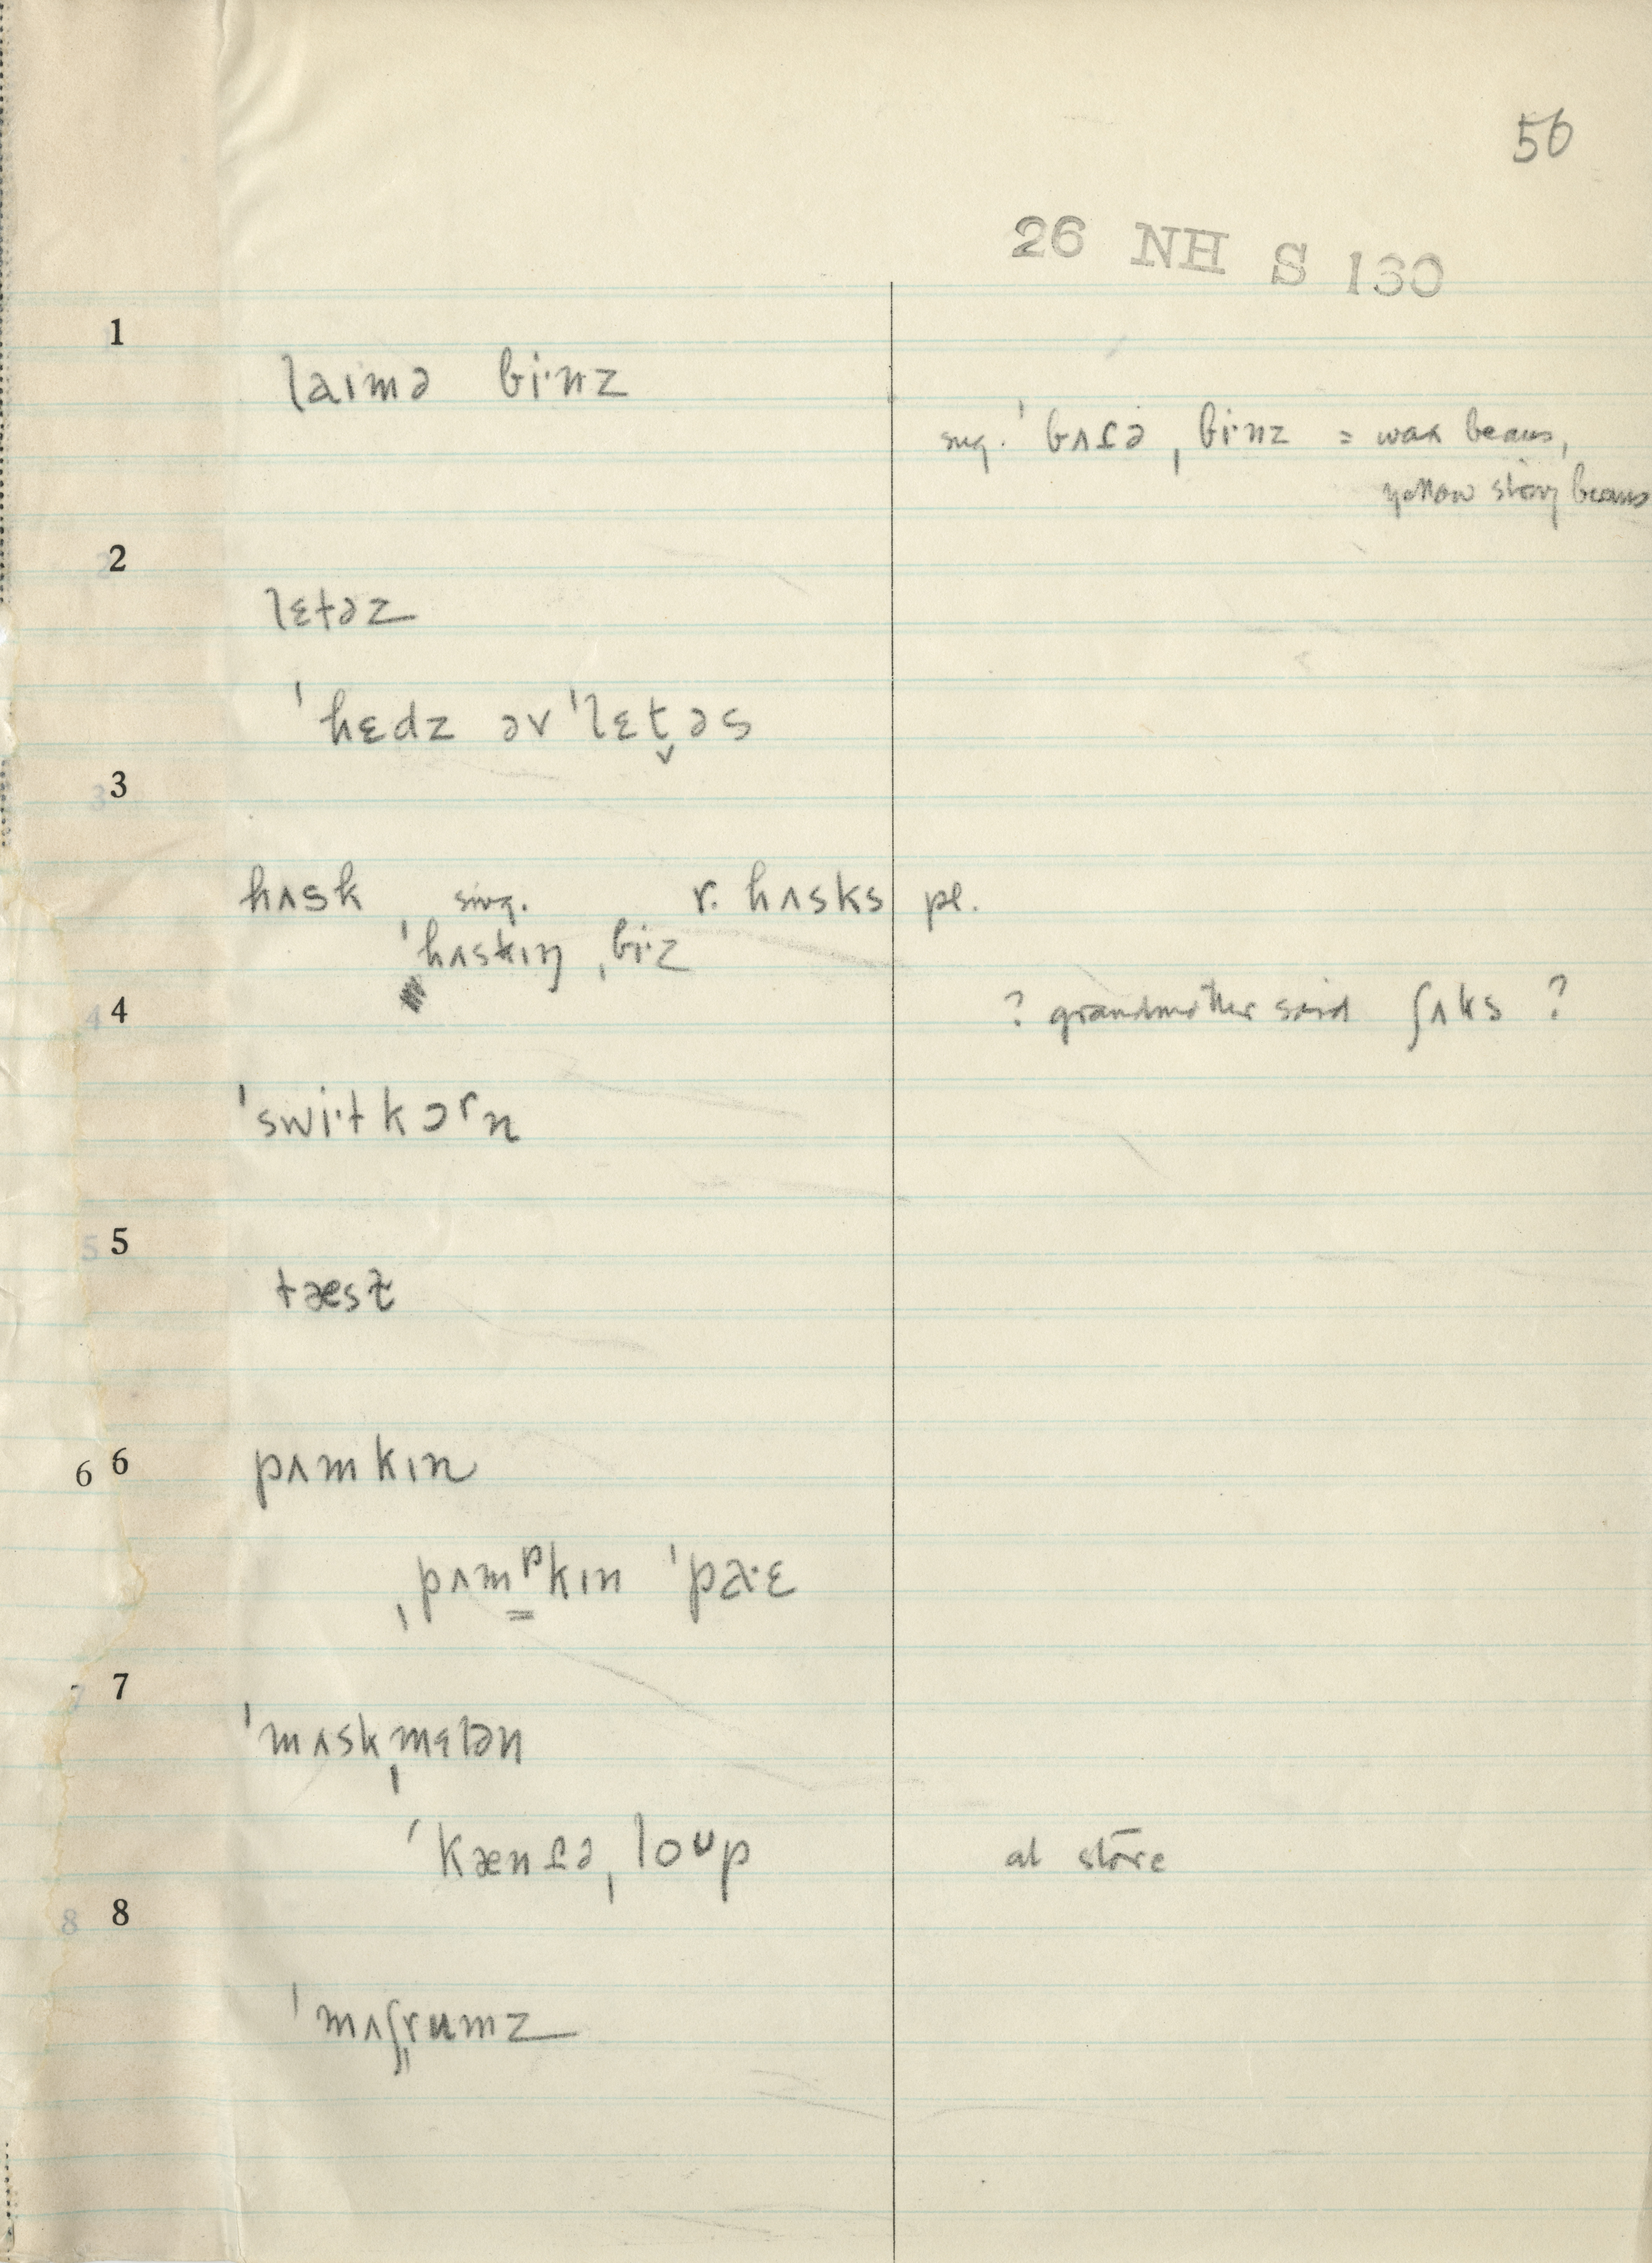 56
26 NH S 130
1
laɪmə bi·nz
sug. ˈbʌɾə ˌbi·nz = wax beans,
yellow string beans
2
lɛtəz
ˈhɛdz əv ˈlɛt̬əs
3
hʌsk sing. r. hʌsks pl.
ˈhʌskɪŋ ˌbi·z
4
? grandmother said ʃʌks ?
ˈswi·tkɔrn
5
tæsɫ
6 6
pʌmkɪn
ˌpʌmᵖkɪn ˈpa·ɛ
7
ˈmʌskˌmɛlən
ˈkænɾəˌloᴜp at store
8
ˈmʌʃrumz